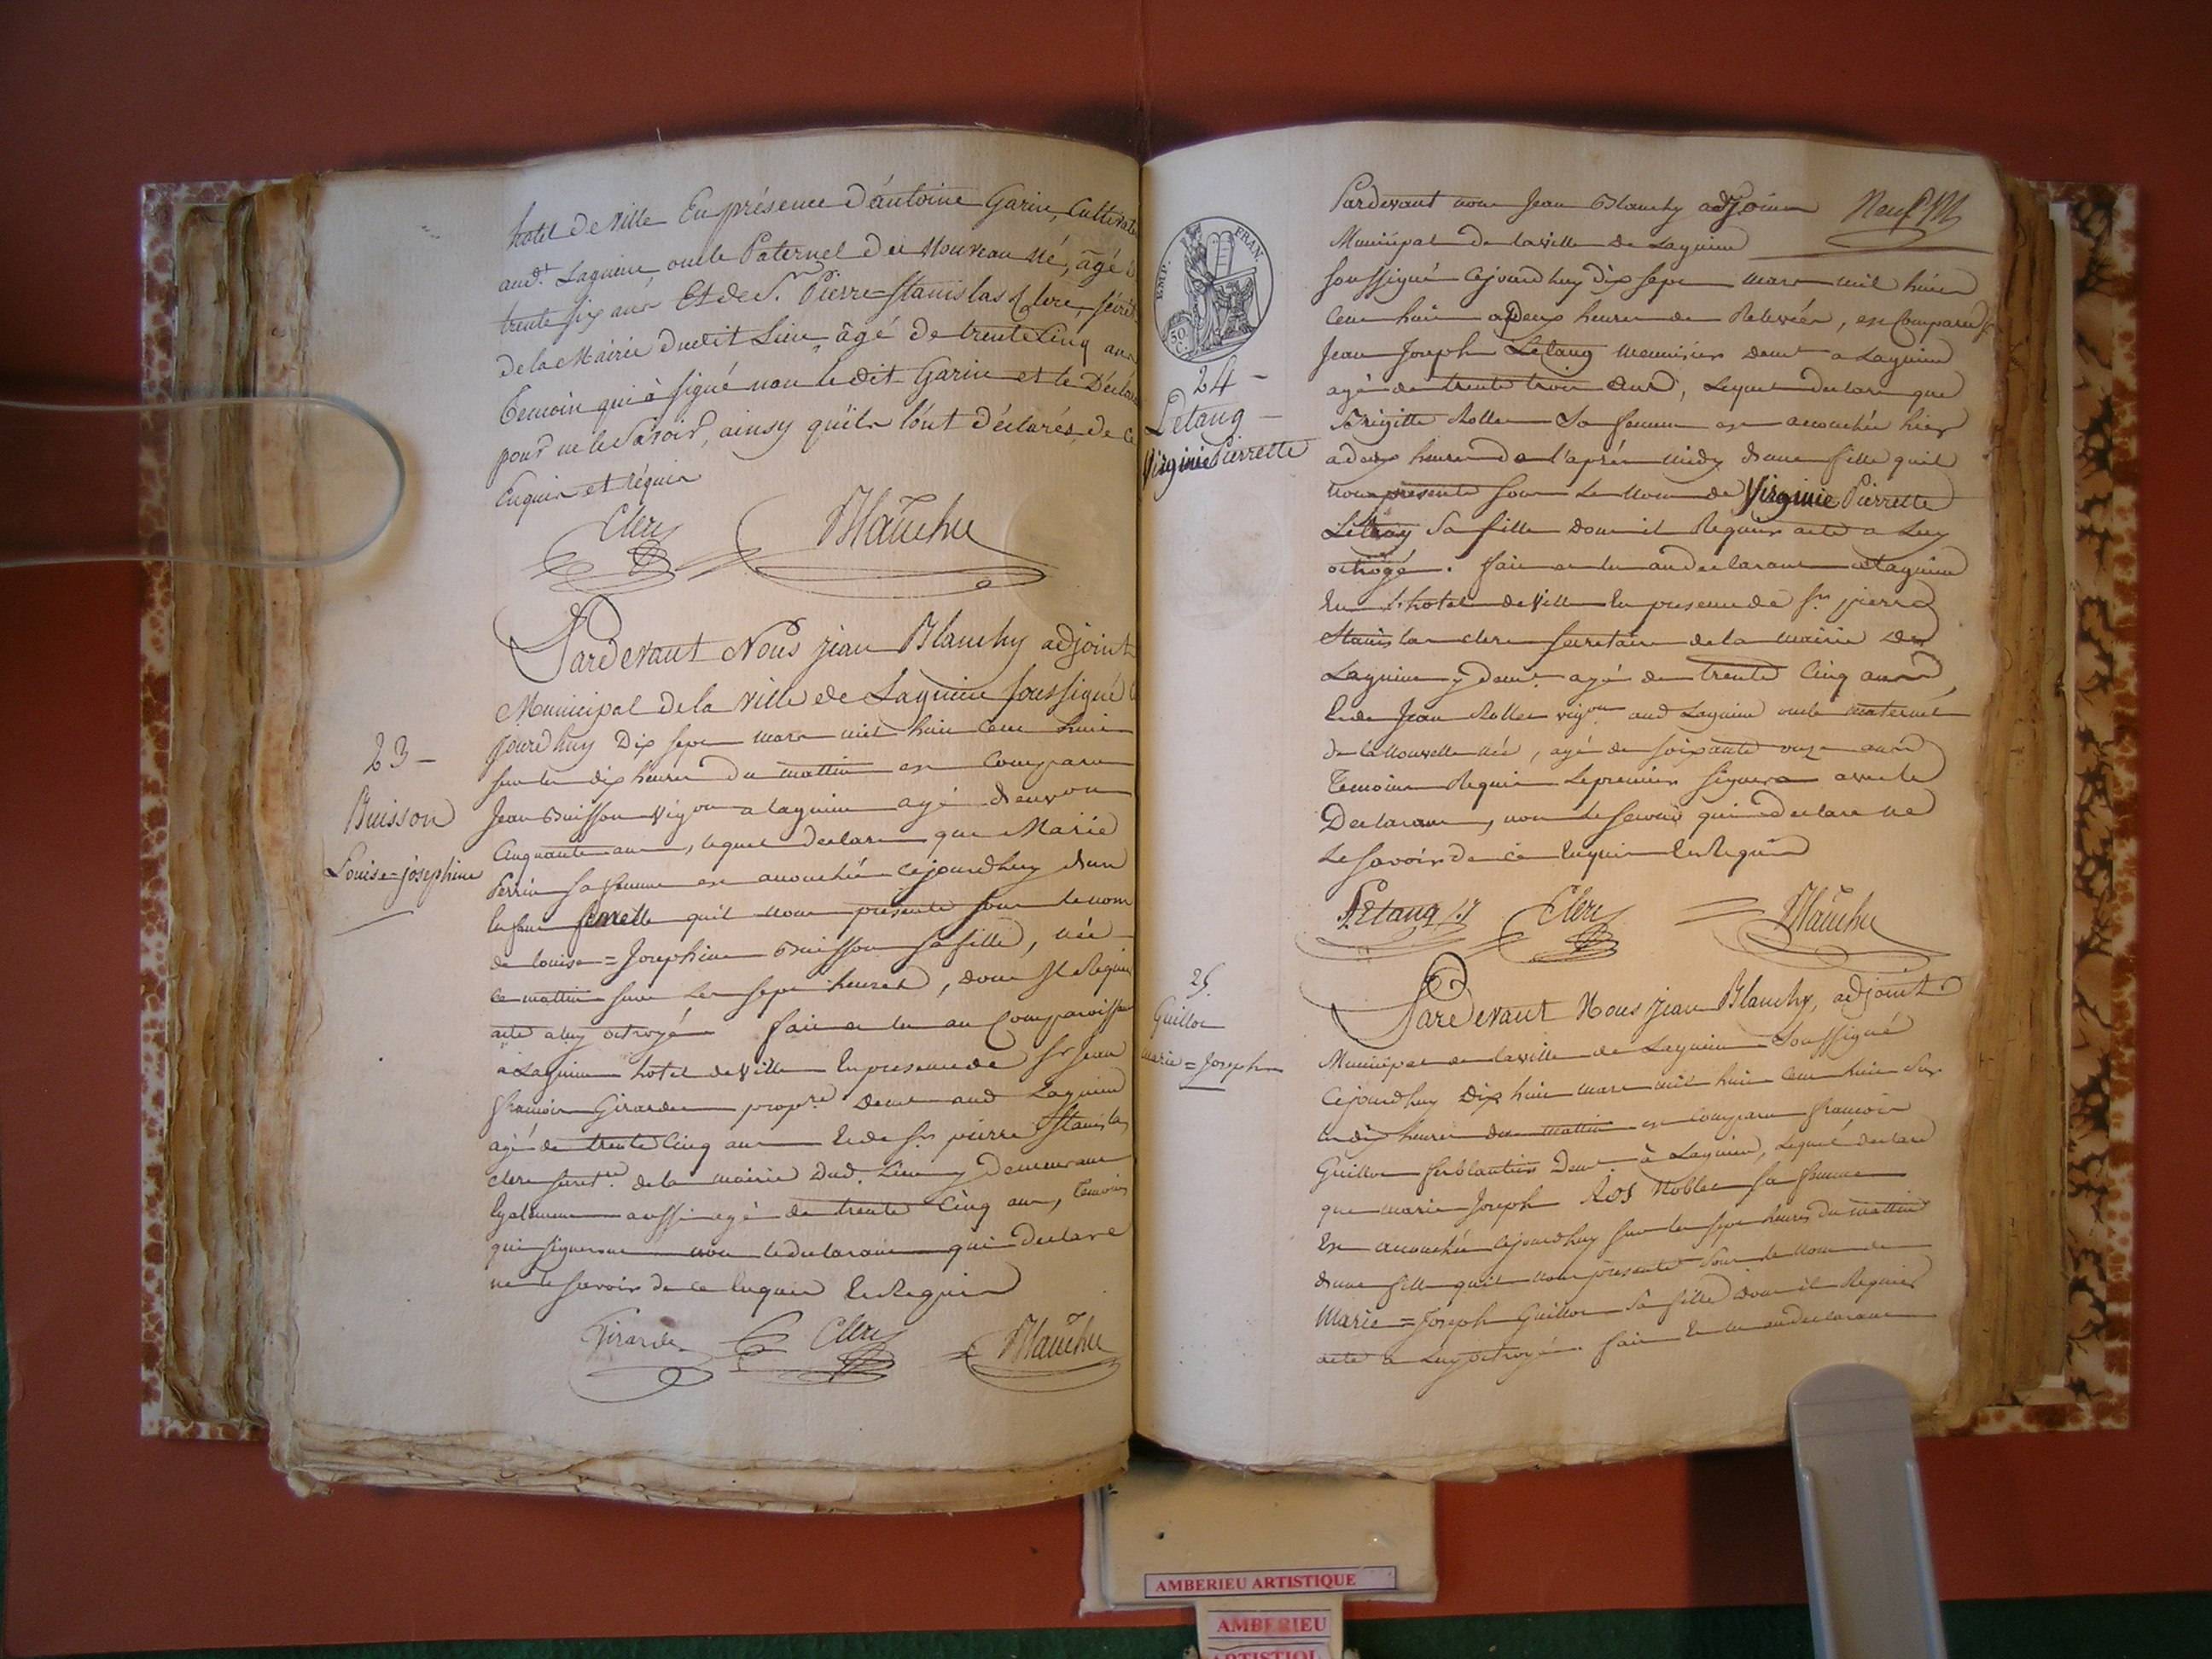 hotel de ville En présence d'antoine Garin, Cultivat
aud.t Lagnieu oncle Paternel du Nouveau né, âgé d
trente six ans Et de S. Pierre=Stanislas Clerc, secrét
de la Mairie dudit Lieu, âgé de trente Cinq ans
Temoin qui à signé non le dit Garin et le Déclar
pour ne le Savoir, ainsy qu'ils l'ont déclarés, de ce
Enquis et réquis
Clerc Blanchy
23 -
Buisson
Louise=josephine
Pardevant Nous jean Blanchy adjoint
Municipal de la ville de Lagnieu soussigné C
jourd'huy Dix sept mars mil huit Cent huit
sur les dix heures du mattin est Comparu
Jean Buisson Vig.on a lagnieu agé d'environ
Cinquante ans, lequel declare que Marie
Perrin sa femme est accouchée cejourdhuy d'un
Enfant femelle quil nous presente sous le nom
de louise=Josephine Buisson sa fille, née
ce mattin sur les sept heures, dont Il Requis
acte a luy octroyé fait et lu au Comparoissant
a Lagnieu hotel de Ville En presence de Sr Jean
francois Girardet prop.re Demt aud Lagnieu
agé de trente Cinq ans Et de Sr pierre Stanislas
Clerc secret.re de la mairie Dud. Lieu y Demeurant
Egalement aussi agé de trente Cinq ans, temoins
qui signeront non le declarant qui Declare
ne le Savoir de ce Enquis Et Requis
Girardet Clerc Blanchy
EMP. FRAN.
50 C.
24 -
Letang -
Virginie Pierrette
Pardevant nous Jean Blanchy adjoint
Municipal de la ville de Lagnieu
soussigné Cejourd huy Dix sept mars mil huit
Cent huit a Deux heures de Relevée, est Comparu
Jean Joseph Letang Menuisier Demt a Lagnieu
agé de trente trois ans, Lequel declare que
Brigitte Rollet Sa femme est accouchée hier
a deux heures de l'après midy d'une fille quil
nous présente sous Le Nom de Virginie Pierrette
Létang Sa fille Dont il Requis acte a Luy
octroyé. fait et lu au declarant a Lagnieu
En L'hotel de Ville En presence de Sr pierre
Stanislas Clerc Secretaire de la Mairie de
Lagnieu y Demt. agé de trente Cinq ans,
Et de Jean Rollet vig.on aud Lagnieu oncle maternel
de la Nouvelle née, agé de soixante onze ans
Temoins Requis Le premier signera avec le
Declarant, non Le Second qui declare ne
Le Savoir de ce Enquis Et Requis
Letang Clerc Blanchy
25.
Guillot
Marie=Joseph
Pardevant Nous jean Blanchy, adjoint
Municipal de la ville de Lagnieu Soussigné
Cejourdhuy Dix huit mars mil huit Cent huit Sur
les dix heures du mattin est Comparu francois
Guillot ferblantier Demt. à Lagnieu, Lequel declare
que marie Joseph Ros Noblet sa femme
Est accouchée Cejourdhuy sur les sept heures du mattin
d'une fille quil nous présente Sous le Nom de
Marie=Joseph Guillot Sa fille Dont il Requis
acte a Luy octroyé. fait Et lu au declarant
AMBERIEU ARTISTIQUE
AMBERIEU